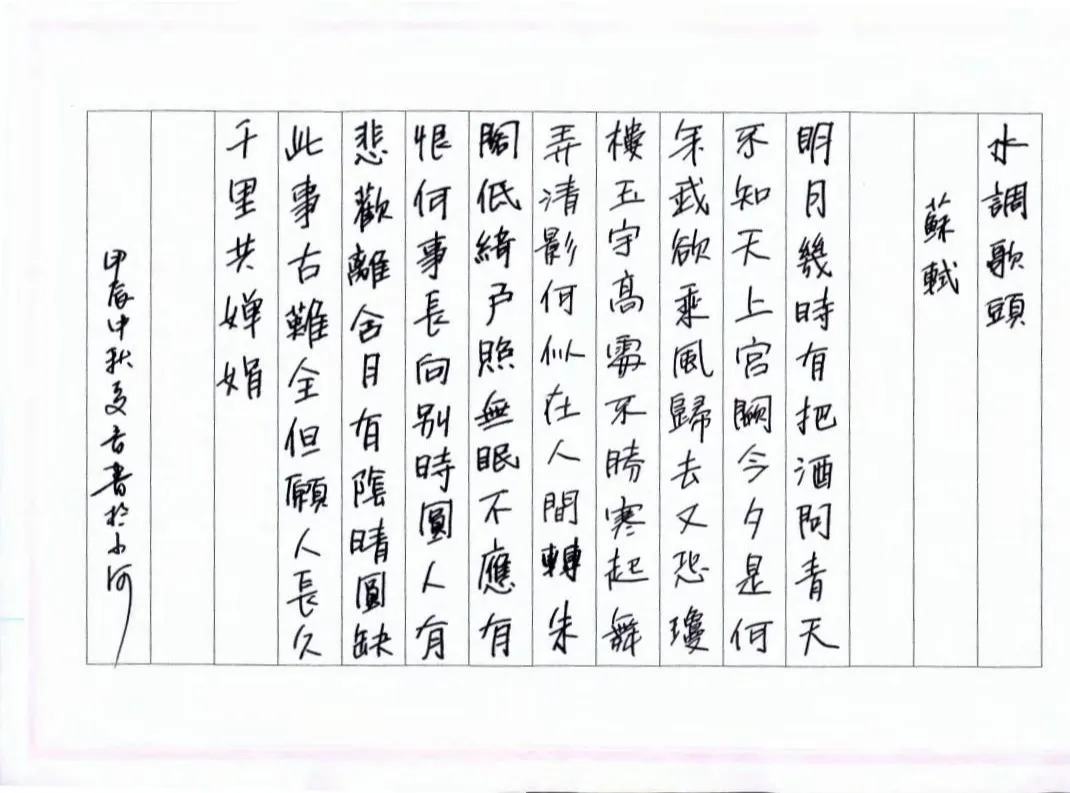 水調歌頭
蘇軾
明月幾時有把酒問青天
不知天上宮闕今夕是何
年我欲乘風歸去又恐瓊
樓玉宇高處不勝寒起舞
弄清影何似在人間轉朱
閣低綺户照無眠不應有
恨何事長向别時圓人有
悲歡離合月有陰晴圓缺
此事古難全但願人長久
千里共婵娟
甲辰中秋書於小河